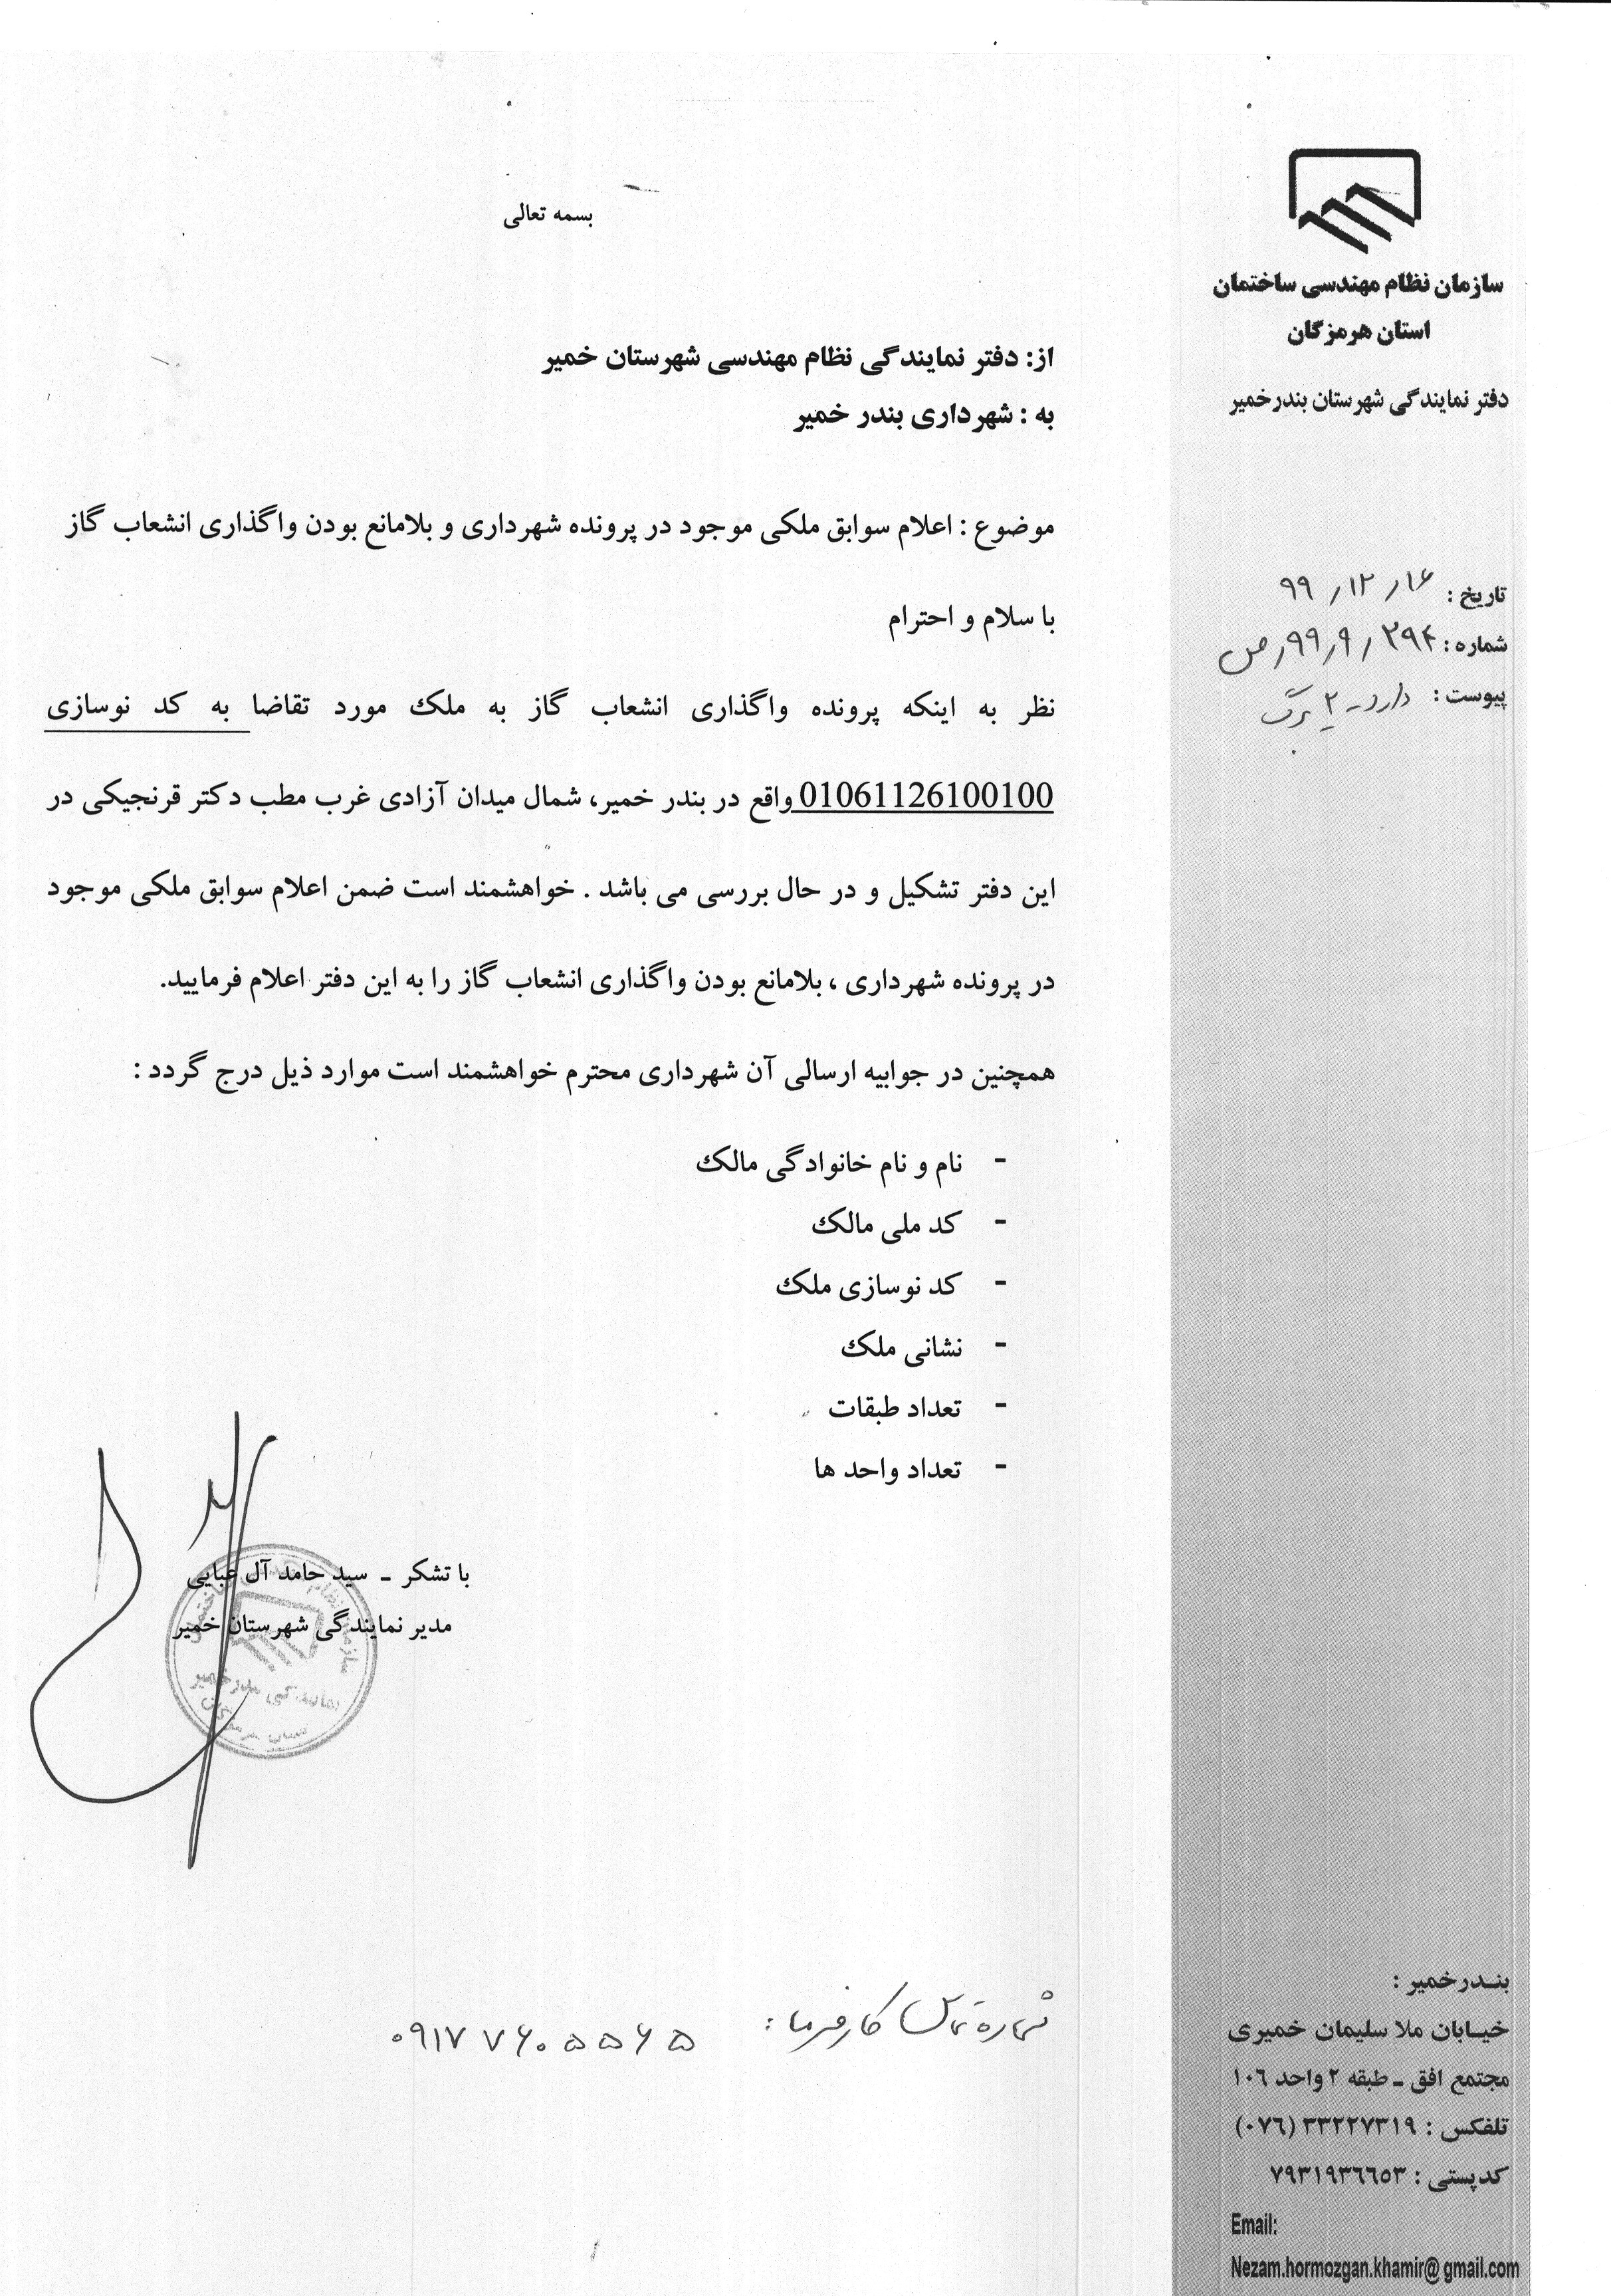 بسمه تعالی
سازمان نظام مهندسی ساختمان
استان هرمزگان
دفتر نمایندگی شهرستان بندرخمیر
تاریخ : ۹۹/۱۲/۱۶
شماره : ۳۹۴/۹/۹۹/ص
پیوست : دارد - ۲ برگ
از: دفتر نمایندگی نظام مهندسی شهرستان خمیر
به : شهرداری بندر خمیر
موضوع : اعلام سوابق ملکی موجود در پرونده شهرداری و بلامانع بودن واگذاری انشعاب گاز
با سلام و احترام
نظر به اینکه پرونده واگذاری انشعاب گاز به ملک مورد تقاضا به کد نوسازی
01061126100100 واقع در بندر خمیر، شمال میدان آزادی غرب مطب دکتر قرنجیکی در
این دفتر تشکیل و در حال بررسی می باشد . خواهشمند است ضمن اعلام سوابق ملکی موجود
در پرونده شهرداری ، بلامانع بودن واگذاری انشعاب گاز را به این دفتر اعلام فرمایید.
همچنین در جوابیه ارسالی آن شهرداری محترم خواهشمند است موارد ذیل درج گردد :
- نام و نام خانوادگی مالک
- کد ملی مالک
- کد نوسازی ملک
- نشانی ملک
- تعداد طبقات
- تعداد واحد ها
با تشکر ـ سید حامد آل عبایی
مدیر نمایندگی شهرستان خمیر
نمایندگی بندرخمیر
شماره تماس کارفرما : ۰۹۱۷۷۶۰۵۵۶۵
بنـدرخمیر :
خیـابان ملا سلیمان خمیری
مجتمع افق ـ طبقه ۲ واحد ۱۰۶
تلفکس : ۳۳۲۲۷۳۱۹ (۰۷۶)
کدپستی : ۷۹۳۱۹۳۶۶۵۳
Email:
Nezam.hormozgan.khamir@gmail.com